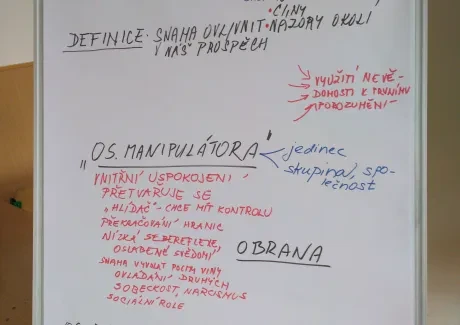 • ČINY
DEFINICE • SNAHA OVLIVNIT NÁZORY OKOLÍ
V NÁŠ PROSPĚCH
VYUŽITÍ NEVĚ-
DOMOSTI K PRVNÍMU
POROZUMĚNÍ
„OS. MANIPULÁTORA"
jedinec
skupina, spo-
lečnost
VNITŘNÍ USPOKOJENÍ
PŘETVAŘUJE SE
„HLÍDAČ" - CHCE MÍT KONTROLU
PŘEKRAČOVÁNÍ HRANIC
NÍZKÁ SEBEREFLEXE,
SVĚDOMÍ
SNAHA VYVOLAT POCIT VINY
OVLÁDÁNÍ DRUHÝCH
SOBECKOST, NARCISMUS
SOCIÁLNÍ ROLE
OBRANA